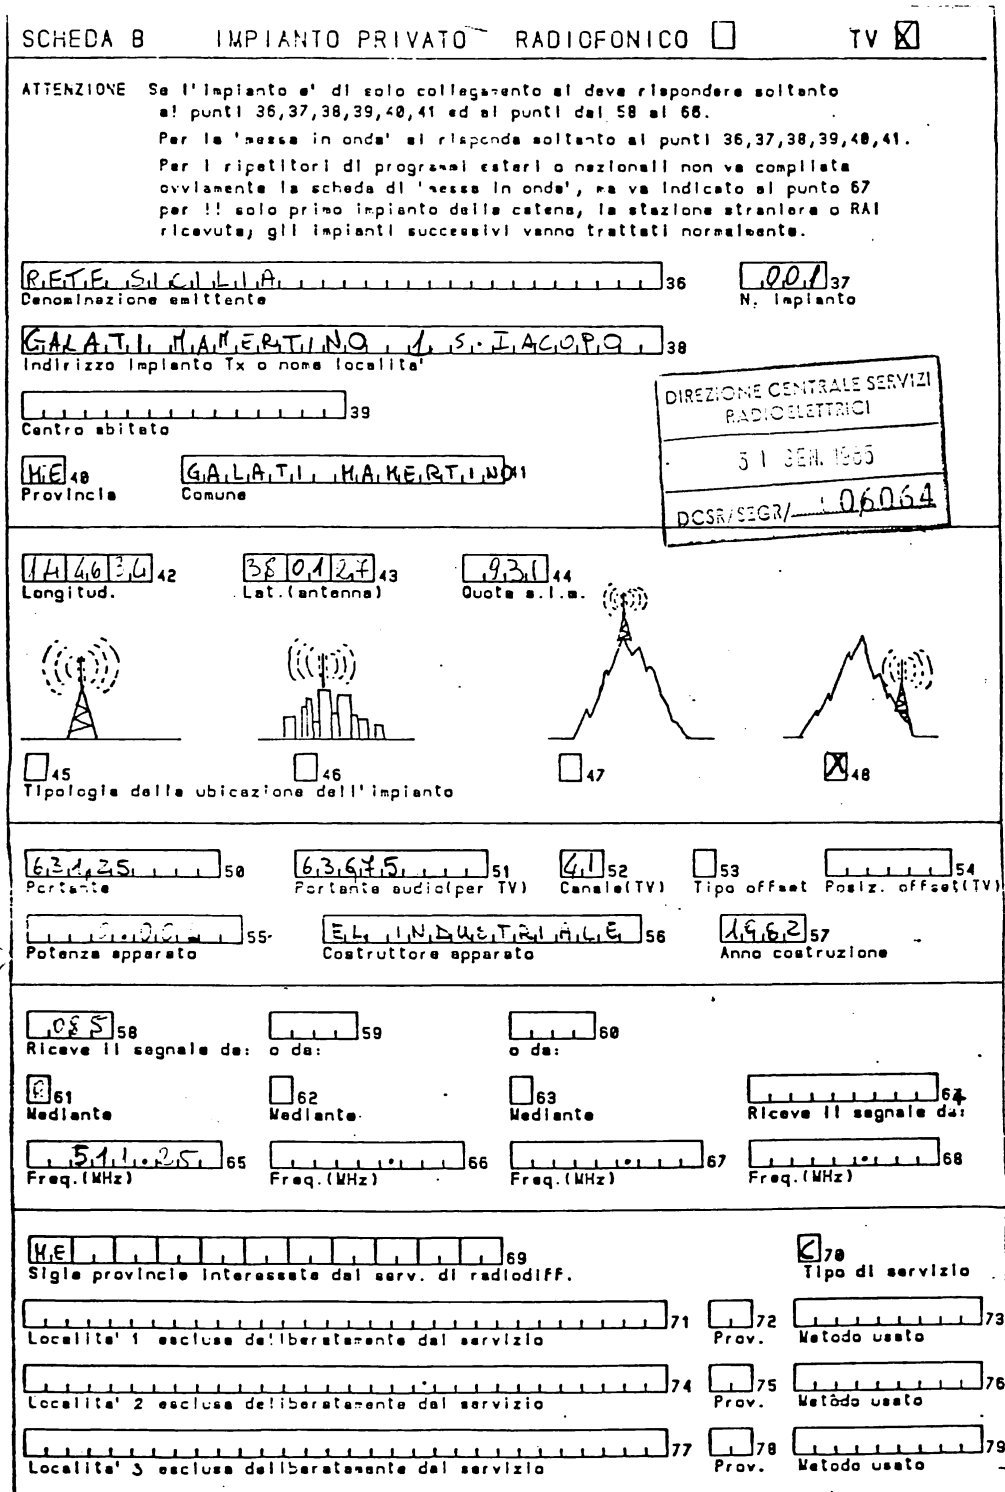 SCHEDA B IMPIANTO PRIVATO RADIOFONICO TV X
ATTENZIONE Se l'impianto e' di solo collegamento si deve rispondere soltanto
ai punti 36,37,38,39,40,41 ed ai punti dal 58 al 68.
Per la 'messa in onda' si risponda soltanto ai punti 36,37,38,39,40,41.
Per i ripetitori di programmi esteri o nazionali non va compilata
ovviamente la scheda di 'messa in onda', ma va indicato al punto 67
per il solo primo impianto della catena, la stazione straniera o RAI
ricevuta; gli impianti successivi vanno trattati normalmente.
RETE SICILIA 36 001 37
Denominazione emittente N. impianto
GALATI MAMERTINO 1 S. IACOPO 38
Indirizzo impianto Tx o nome localita'
DIREZIONE CENTRALE SERVIZI
RADIOELETTRICI
31 GEN. 1985
DCSR/SEGR/ 06064
39
Centro abitato
ME 40 GALATI MAMERTINO 41
Provincia Comune
14 46 34 42 38 01 27 43 931 44
Longitud. Lat.(antenna) Quota s.l.m.
45 46 47 X 48
Tipologia della ubicazione dell'impianto
631.25 50 636.75 51 41 52 53 54
Portante Portante audio(per TV) Canale(TV) Tipo offset Posiz. offset(TV)
55 EL INDUSTRIALE 56 1982 57
Potenza apparato Costruttore apparato Anno costruzione
085 58 59 60
Riceve il segnale da: o da: o da:
61 62 63 64
Mediante Mediante Mediante Riceve il segnale da:
511.25 65 66 67 68
Freq.(MHz) Freq.(MHz) Freq.(MHz) Freq.(MHz)
ME 69 C 70
Sigle provincie interessate dal serv. di radiodiff. Tipo di servizio
71 72 73
Localita' 1 esclusa deliberatamente dal servizio Prov. Metodo usato
74 75 76
Localita' 2 esclusa deliberatamente dal servizio Prov. Metodo usato
77 78 79
Localita' 3 esclusa deliberatamente dal servizio Prov. Metodo usato